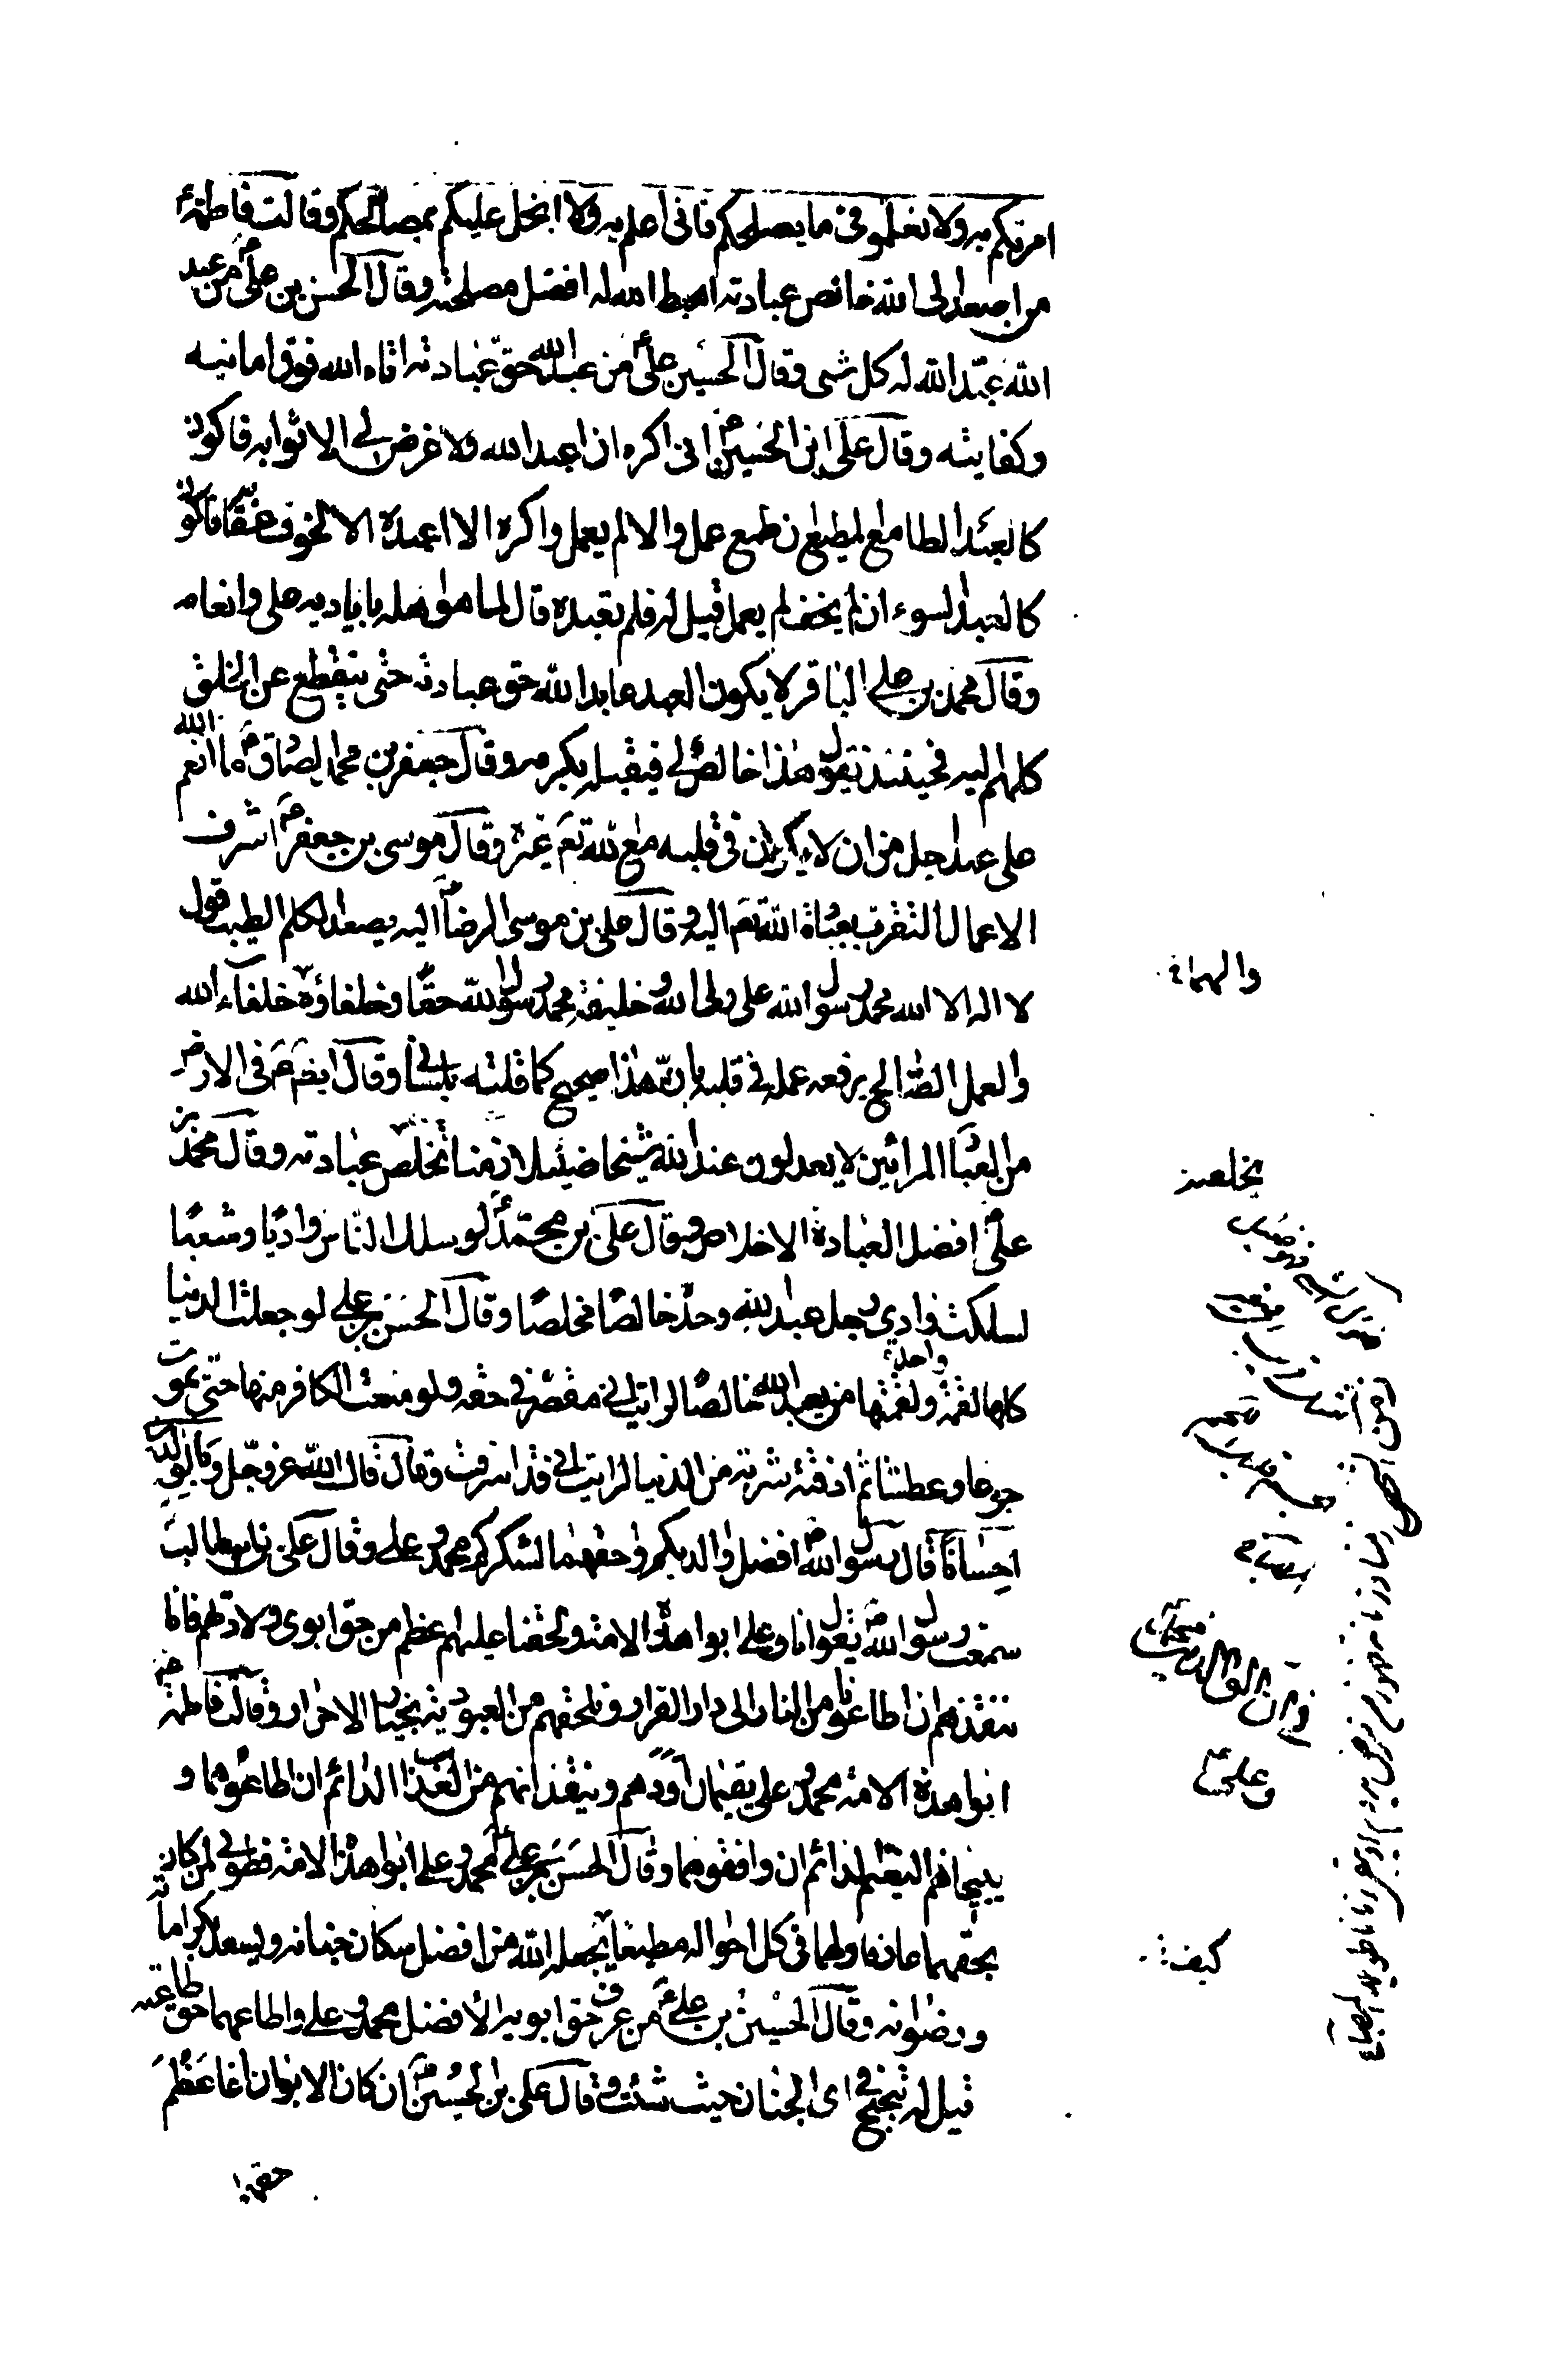 امرتكم به ولا تعلموني ما يصلحكم فاني اعلم به ولا ابخل عليكم بمصالحكم وقالت فاطمة ع
من اصعد الى الله خالص عبادته اهبط الله له افضل مصلحته وقال الحسن بن علي ع من عبد
الله عبّد الله له كل شي وقال الحسين بن علي ع من عبد الله حق عبادته اتاه الله فوق امانيه
وكفايته وقال علي ابن الحسين ع اني اكره ان اعبد الله ولا غرض لي الا ثوابه فاكون
كالعبد الطامع المطيع ان طمع عمل والا لم يعمل واكره الا اعبده الا لخوف عقابه فاكون
كالعبد السوء ان لم يخف لم يعمل قيل له فلم تعبده قال لما هو اهله باياديه علي وانعامه
وقال محمد بن علي الباقر لا يكون العبد عابدا لله حق عبادته حتى ينقطع عن الخلق
كلهم اليه فحينئذ يقول هذا خالص لي فيقبله بكرمه وقال جعفر بن محمد الصادق ع ما انعم الله
على عبد اجل من ان لا يكون في قلبه مع الله تع غيره وقال موسى بن جعفر ع اشرف
الاعمال التقرب بعبادة الله تع اليه وقال علي بن موسى الرضا ع اليه يصعد الكلم الطيب قول
لا اله الا الله محمد رسول الله علي ولي الله وخليفة محمد رسول الله حقا وخلفاؤه خلفاء الله
والعمل الصالح يرفعه عمله في قلبه بان هذا صحيح كما قلته بلساني وقال ايضم في الارض
من العباد المرائين لا يعدلون عند الله شيخا ضئيلا زمنا تخلص عبادته وقال محمد بن
علي ع افضل العبادة الاخلاص وقال علي بن محمد ع لو سلك الناس واديا وشعبا
لسلكت وادي رجل عبد الله وحده خالصا مخلصا وقال الحسن بن علي لو جعلت الدنيا
كلها لقمة واحدة ولقمتها من يعبد الله خالصا لرايت اني مقصر في حقه ولو منعت الكافر منها حتى يموت
جوعا وعطشا ثم اذقته شربة من الدنيا لرايت اني قد اسرفت وقال قال الله عز وجل وبالوالدين
احسانا قال رسول الله ص افضل والديكم واحقهما لشكركم محمد وعلي وقال علي بن ابي طالب
سمعت رسول الله ص يقول انا وعلي ابوا هذه الامة ولحقنا عليهم اعظم من حق ابوي ولادتهم فانا
ننقذهم ان اطاعونا من النار الى دار القرار ونلحقهم من العبودية بخيار الاحرار وقالت فاطمة ع
ابوا هذه الامة محمد وعلي يقيمان اودهم وينقذانهم من العذاب الدائم ان اطاعوهما و
يبيحانهم النعيم الدائم ان وافقوهما وقال الحسن بن علي ع محمد وعلي ابوا هذه الامة فطوبى لمن كان
بحقهما عارفا ولهما في كل احواله مطيعا يجعله الله من افضل سكان جنانه ويسعده بكراماته
ورضوانه وقال الحسين بن علي ع من عرف حق ابويه الافضل محمد وعلي واطاعهما حق طاعته
قيل له تبحبح في اي الجنان حيث شئت وقال علي بن الحسين ع ان كان الابوان انما عظم
حقهما
يخلصه
وعلي ع
كيف